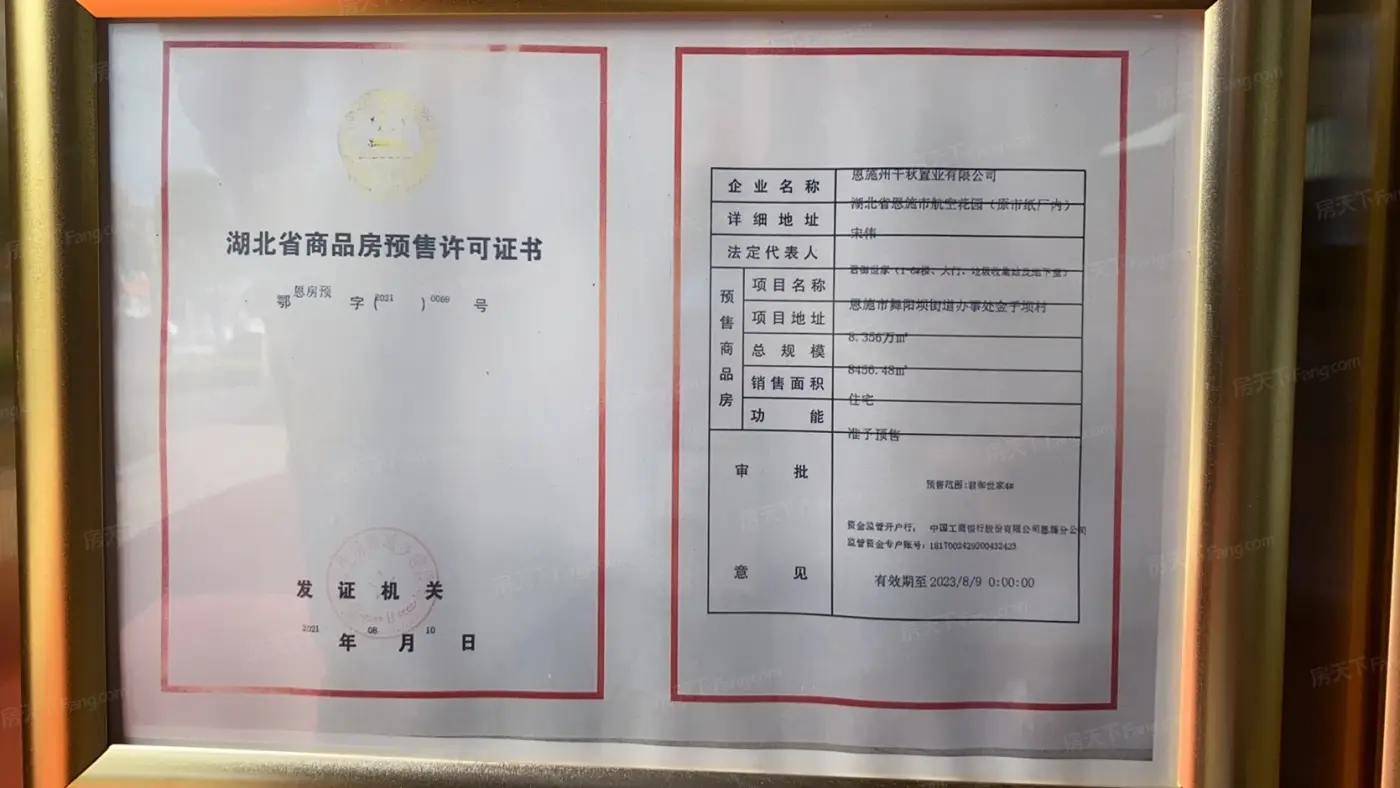 湖北省商品房预售许可证书
鄂 恩房预 字( 2021 ) 0069 号
发证机关
2021 年 08 月 10 日
企业名称 恩施州千秋置业有限公司
详细地址 湖北省恩施市航空花园（原市纸厂内）
法定代表人 宋伟
预售商品房
项目名称 君御世家（1-6#楼、大门、垃圾收集站及地下室）
项目地址 恩施市舞阳坝街道办事处金子坝村
总规模 8.356万㎡
销售面积 8456.48㎡
功能 住宅
审批意见 准予预售
预售范围:君御世家4#
资金监管开户行： 中国工商银行股份有限公司恩施分公司
监管资金专户账号: 1817002429200432423
有效期至 2023/8/9 0:00:00
房天下Fang.com